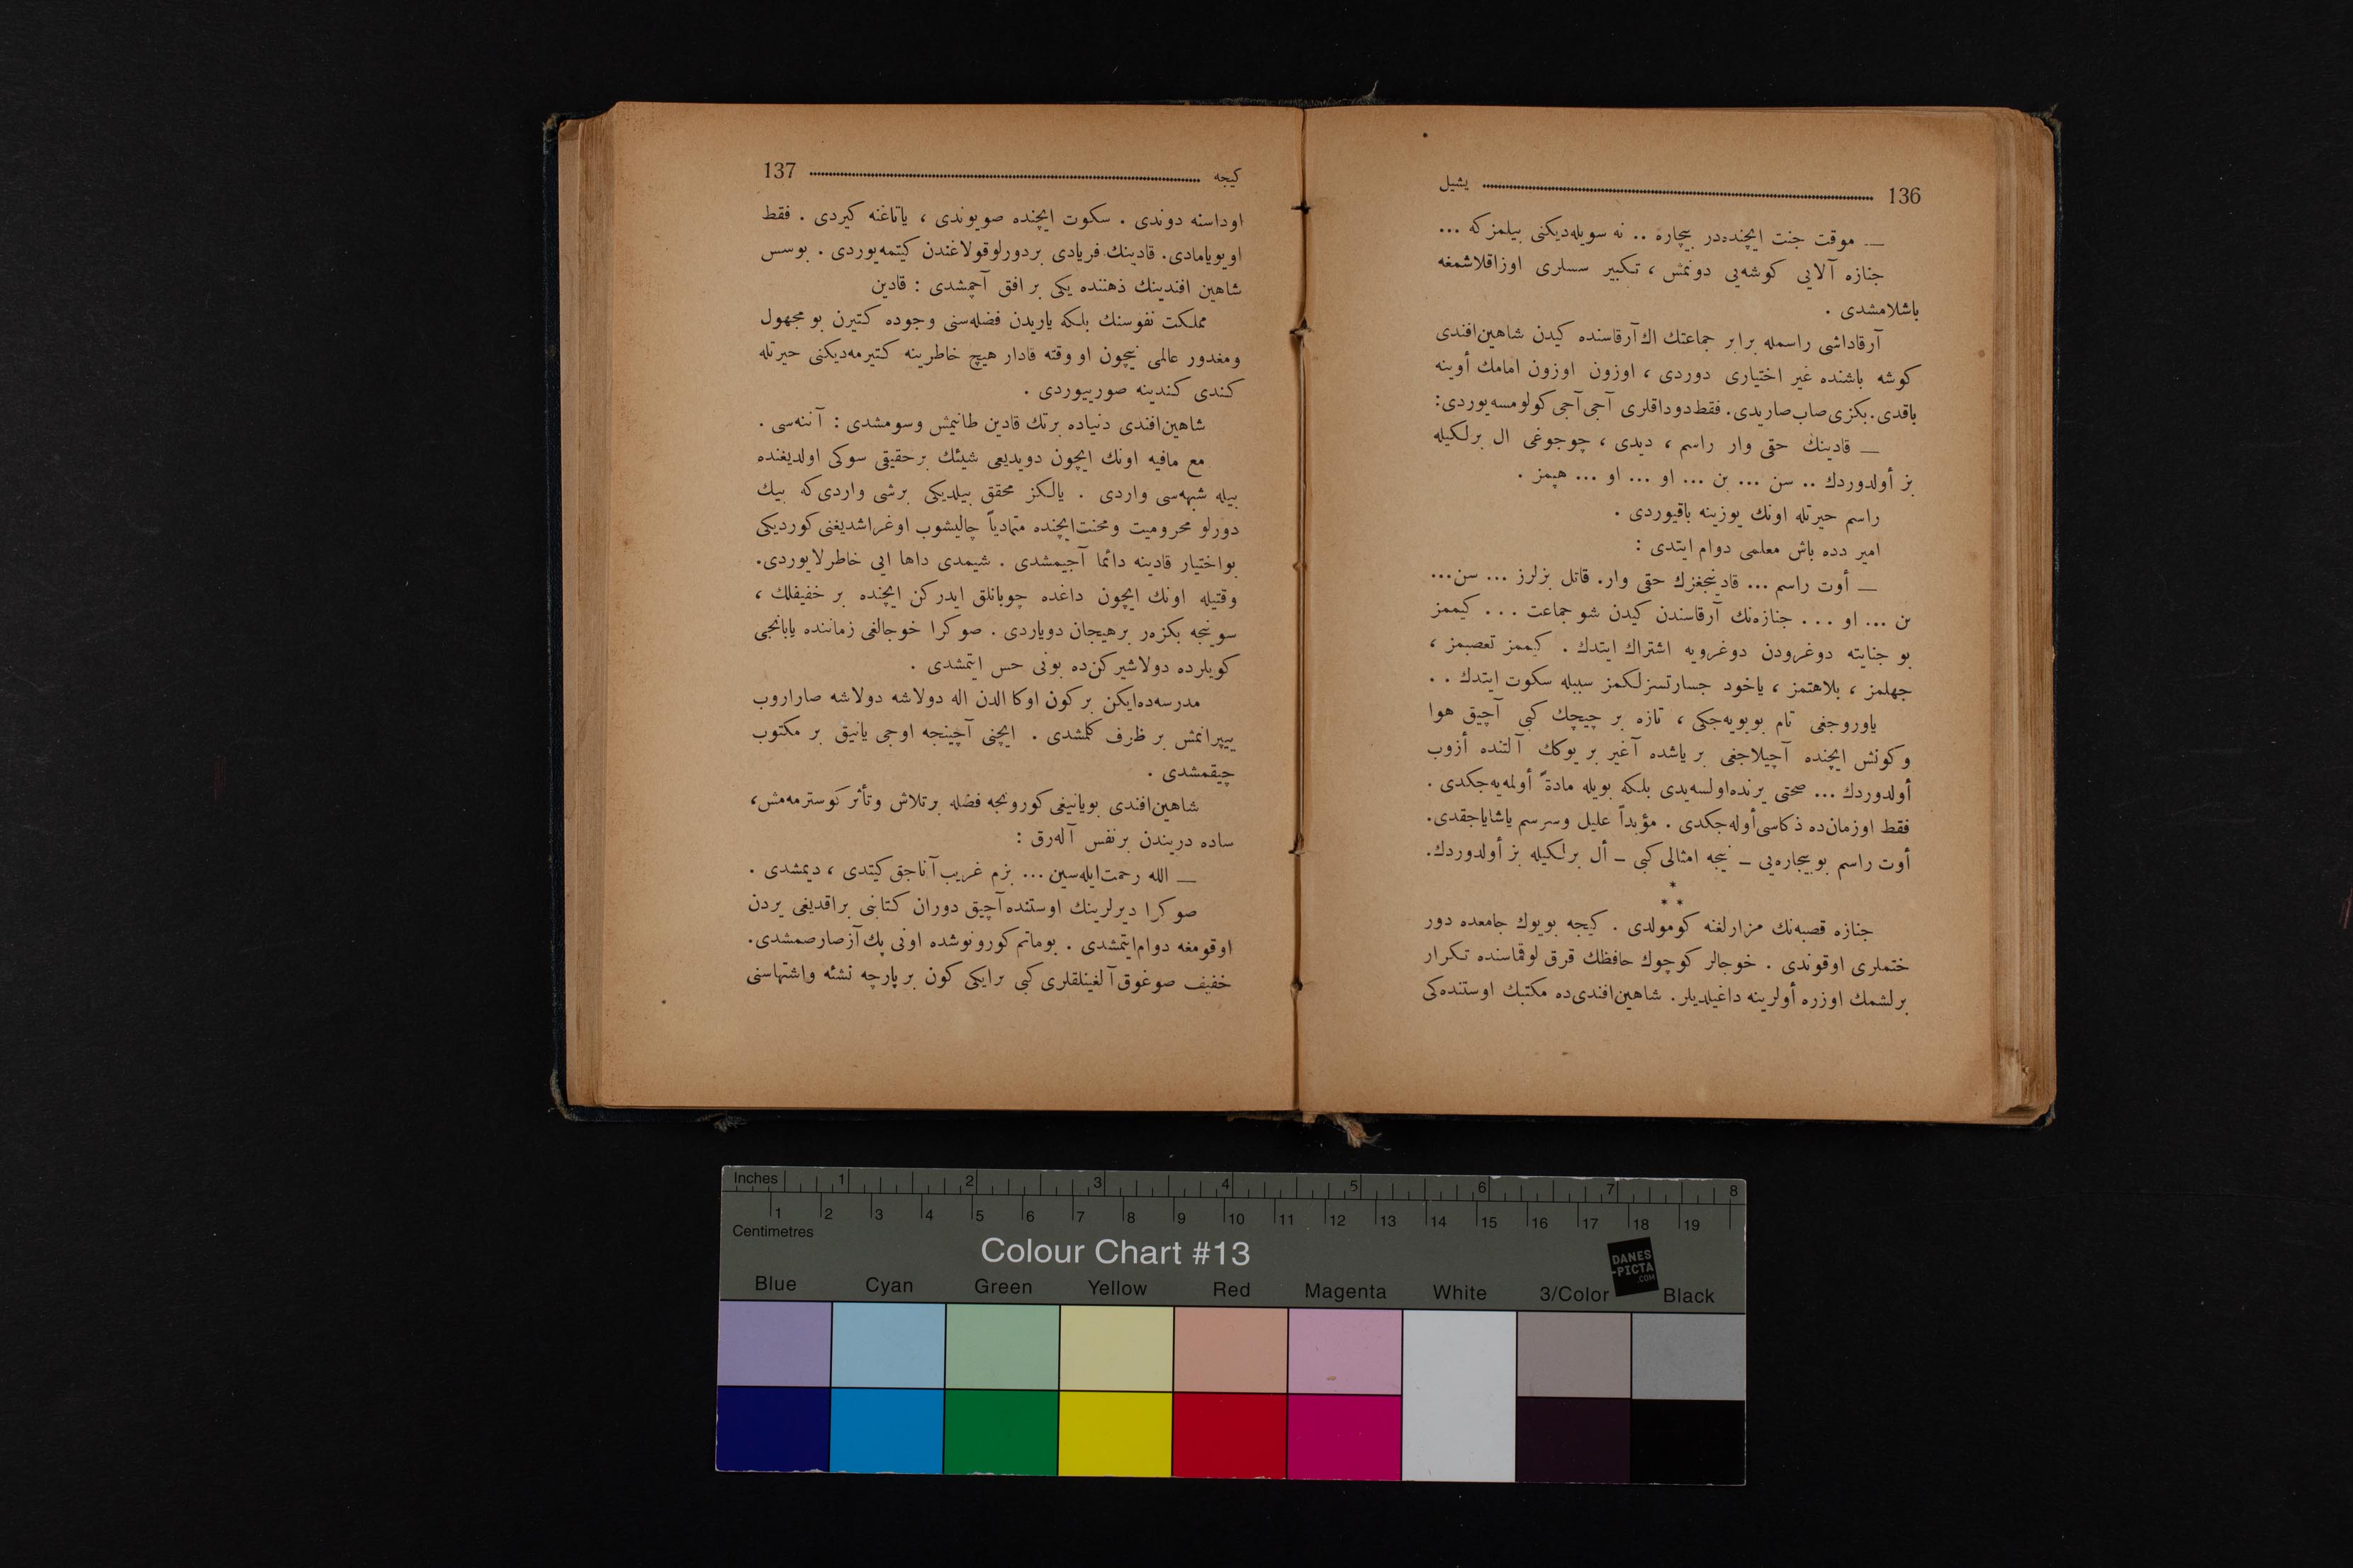 136 يشيل
ــ موقت جنت ايچنده‌در بيچاره .. نه سويله‌ديكنى بيلمزكه ...
جنازه آلايى كوشه‌يى دونمش ، تكبير سسلرى اوزاقلاشمغه
باشلامشدى .
آرقاداشى راسمله برابر جماعتك اك آرقاسنده كيدن شاهين‌افندى
كوشه باشنده غير اختيارى دوردى ، اوزون اوزون امامك أوينه
باقدى. بكزى صاب‌صاريدى. فقط دوداقلرى آجى آجى كولومسه‌يوردى:
ــ قادينك حقى وار راسم ، ديدى ، چوجوغى ال برلكيله
بز أولدوردك .. سن ... بن ... او ... او ... هپمز .
راسم حيرتله اونك يوزينه باقيوردى .
امير دده باش معلمى دوام ايتدى :
ــ أوت راسم ... قادينجغزك حقى وار. قاتل بزلرز ... سن...
بن ... او ... جنازه‌نك آرقاسندن كيدن شو جماعت ... كيممز
بو جنايته دوغرودن دوغرويه اشتراك ايتدك . كيممز تعصبمز ،
جهلمز ، بلاهتمز ، ياخود جسارتسزلكمز سببله سكوت ايتدك ..
ياوروجغى تام بويويه‌جكى ، تازه بر چيچك كبى آچيق هوا
وكونش ايچنده آچيلاجغى بر ياشده آغير بر يوكك آلتنده أزوب
أولدوردك ... صحتى يرنده‌اولسه‌يدى بلكه بويله مادةً أولمه‌يه‌جكدى .
فقط اوزمان‌ده ذكاسى‌أوله‌جكدى . مؤبداً عليل وسرسم ياشاياجقدى.
أوت راسم بوبيچاره‌يى ــ نيجه امثالى كبى ــ أل برلكيله بز أولدوردك.
*
* *
جنازه قصبه‌نك مزارلغنه كومولدى . كيجه بويوك جامعده دور
ختملرى اوقوندى . خوجالر كوچوك حافظك قرق لوقماسنده تكرار
برلشمك اوزره أولرينه داغيلديلر. شاهين‌افندى‌ده مكتبك اوستنده‌كى
كيجه 137
اوداسنه دوندى . سكوت ايچنده صويوندى ، ياتاغنه كيردى . فقط
اويويامادى. قادينك فريادى بردورلوقولاغندن كيتمه‌يوردى . بوسس
شاهين افندينك ذهننده يكى بر افق آچمشدى : قادين
مملكت نفوسنك بلكه ياريدن فضله‌سنى وجوده كتيرن بو مجهول
ومغدور عالمى نيچون او وقته قادار هيچ خاطرينه كتيرمه‌ديكنى حيرتله
كندى كندينه صورييوردى .
شاهين‌افندى دنياده برتك قادين طانيمش وسومشدى : آننه‌سى .
مع مافيه اونك ايچون دويديغى شيئك برحقيقى سوكى اولديغنده
بيله شبهه‌سى واردى . يالكز محقق بيلديكى برشى واردى‌كه بيك
دورلو محروميت ومحنت‌ايچنده متمادياً چاليشوب اوغراشديغنى كورديكى
بواختيار قادينه دائما آجيمشدى . شيمدى داها ايى خاطرلايوردى.
وقتيله اونك ايچون داغده چوبانلق ايدركن ايچنده بر خفيفلك ،
سوينجه بكزه‌ر برهيجان دوياردى . صوكرا خوجالغى زماننده يابانجى
كويلرده دولاشيركن‌ده بونى حس ايتمشدى .
مدرسه‌ده‌ايكن بركون اوكا الدن اله دولاشه دولاشه صاراروب
ييپرانمش بر ظرف كلمشدى . ايچنى آچينجه اوجى يانيق بر مكتوب
چيقمشدى .
شاهين‌افندى بويانيغى كورونجه فضله برتلاش وتأثر كوسترمه‌مش،
ساده دريندن برنفس آله‌رق :
ــ الله رحمت‌ايله‌سين ... بزم غريب آناجق كيتدى ، ديمشدى .
صوكرا ديرلرينك اوستنده‌آچيق دوران كتابنى براقديغى يردن
اوقومغه دوام‌ايتمشدى . بوماتم كورونوشده اونى پك‌آزصارصمشدى.
خفيف صوغوق آلغينلقلرى كبى برايكى كون بر پارچه نشئه واشتهاسنى
Inches 1 2 3 4 5 6 7 8
1 2 3 4 5 6 7 8 9 10 11 12 13 14 15 16 17 18 19
Centimetres
Colour Chart #13
DANES
-PICTA
.COM
Blue Cyan Green Yellow Red Magenta White 3/Color Black